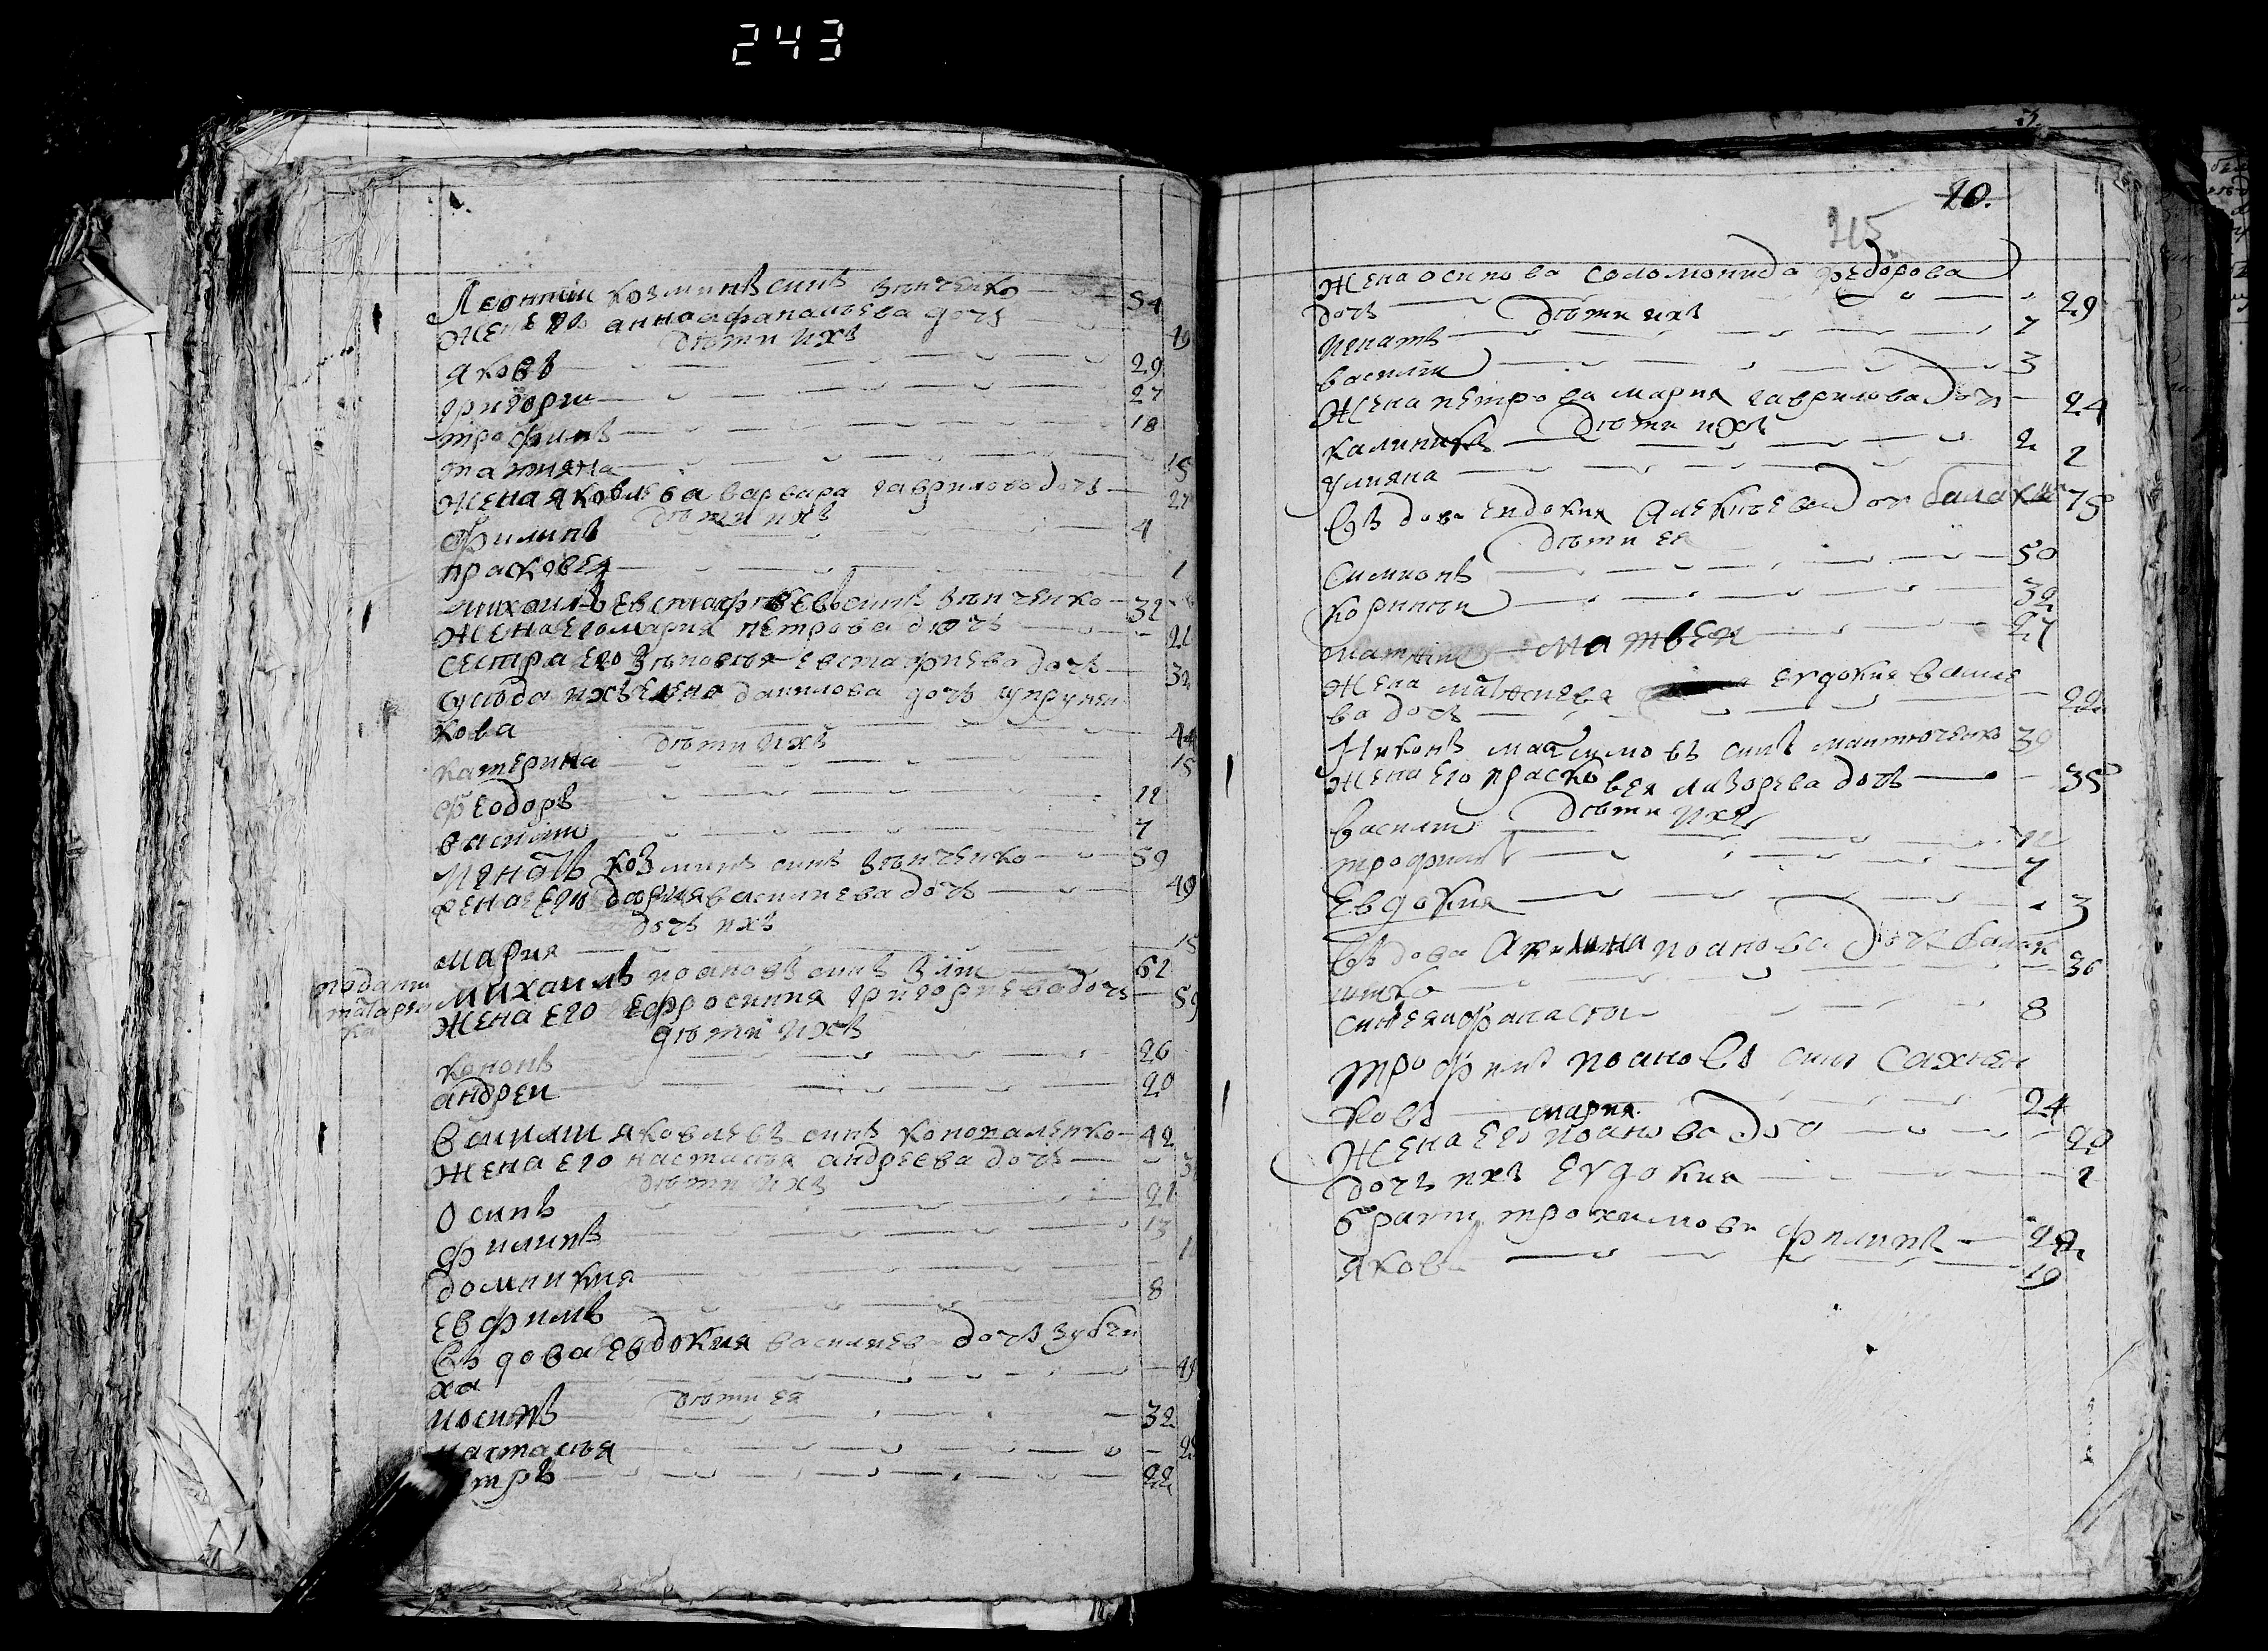 243
Леонтіи козминъ синъ зѣнченко 54
Жена его анна афанасьева дочъ 49
дѣти ихъ
яковъ 29
григорш 27
трофимъ 18
татияна 15
Жена яковлева варвара гаврилова дочъ 27
дѣти ихъ
филипъ 4
прасковея 1
михаилъ евстафиевъ синъ зѣнченко 32
Жена его мария петрова дочъ 21
сестра его зѣновѣя евстафиева дочъ 32
сусѣда ихъ елена данилова дочъ
кова 44
дѣти ихъ
катерина 15
феодоръ 12
василии 7
игнатъ козминъ синъ зѣнченко 59
жена его дария василиева дочъ 49
дочъ ихъ
мария 15
подани
михаилъ иоановъ синъ 62
Жена его ефросиния григориева дочъ 59
дѣти ихъ
кононъ 26
андреи 20
василии яковлевъ синъ коноваленко 42
Жена его настасия андреева дочъ
дѣти ихъ
осипъ 21
филипъ 13
домникия 1
евфимъ 8
въдова евдокия василиева дочъ зубчи
ха 49
дѣти ея
иосипъ 32
настасъя
петръ 22
10.
215
Жена осипова соломонида федорова
дочъ 29
дѣти ихъ
игнатъ 7
василии 3
Жена петрова мария гаврилова дочъ 24
дѣти ихъ
калиникъ 2
улияна 2
въдова евдокия алексѣева дочъ 75
дѣти ея
симионъ 50
корнии 32
матвеи 27
Жена матвиева евдокия васи
ва дочъ 22
никонъ максимовъ синъ 39
жена его прасковея лазорева дочъ 35
дѣти ихъ
василии 12
трофимъ 7
евдокия 3
въдова акилина иоанова дочъ
36
синъ ея афанасии 8
трофимъ иоановъ синъ сахнен
ковъ 24
мария
Жена его иоанова доч 20
дочъ ихъ евдокия 2
брати трохимови филипъ 22
яковъ 19